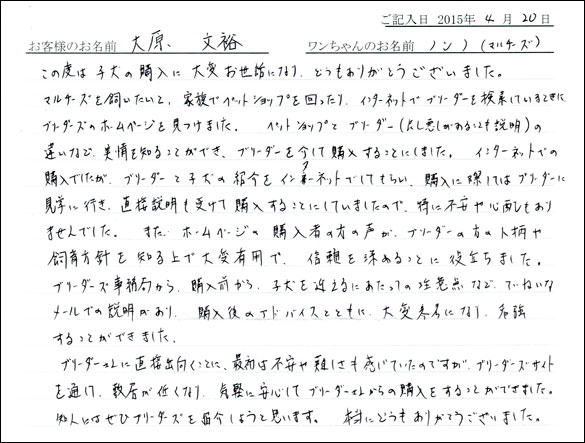 ご記入日 2015年 4 月 20 日
お客様のお名前 大原 文裕 ワンちゃんのお名前 ノンノ (マルチーズ)
この度は子犬の購入に大変お世話になり、どうもありがとうございました。
マルチーズを飼いたいと、家族でペットショップを回ったり、インターネットでブリーダーを検索しているときに
ブリーダーズのホームページを見つけました。 ペットショップとブリーダー(良し悪しがあることも説明)の
違いなど、実情を知ることができ、ブリーダーを介して購入することにしました。 インターネットでの
購入でしたが、ブリーダーと子犬の紹介をインターネットでしてもらい、購入に際してはブリーダーに
見学に行き、直接説明も受けて購入することにしていましたので、特に不安や心配もあり
ませんでした。 また、ホームページの購入者の方の声が、ブリーダーの方の人柄や
飼育方針を知る上で大変有用で、信頼を深めることに役立ちました。
ブリーダーズ事務局から、購入前から、子犬を迎えるにあたっての注意点など、ていねいな
メールでの説明があり、購入後のアドバイスとともに、大変参考になり、勉強
することができました。
ブリーダーさんに直接出向くことに、最初は不安や難しさも感じていたのですが、ブリーダーズサイト
を通じ、敷居が低くなり、気軽に安心してブリーダーさんからの購入をすることができました。
知人にはぜひブリーダーズを紹介しようと思います。 本当にどうもありがとうございました。